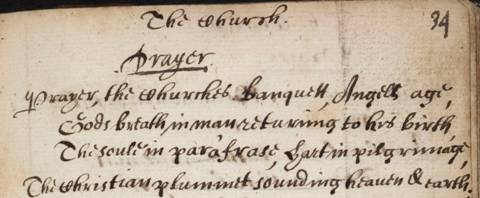 The Church.
34
Prayer
Prayer, the Churches banquett, Angells age,
Gods breath, in man returing to his birth
The soule in parafrase, Hart in pilgrimage,
The Christian plummet sounding heaven & earth.